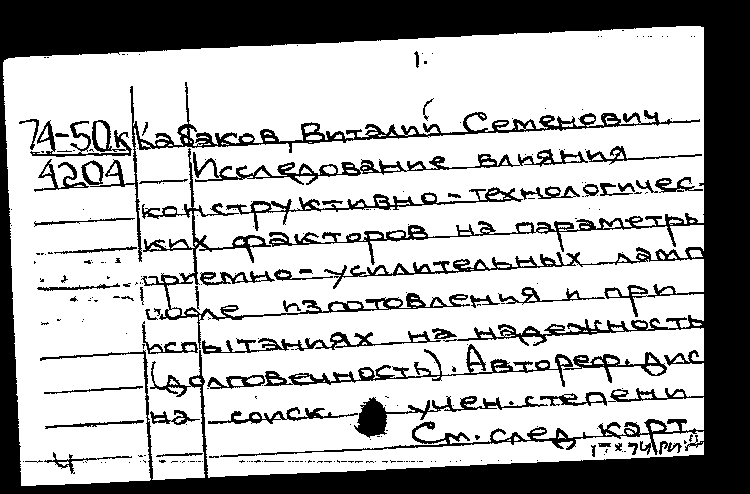 1.
74-50к Кабаков, Виталий Семенович.
4204 Исследование влияния
конструктивно-технологичес-
ких факторов на параметры
приемно-усилительных ламп
после изготовления и при
испытаниях на надежность
(долговечность). Автореф. дис
на соиск. учен. степени
См. след. карт.
4